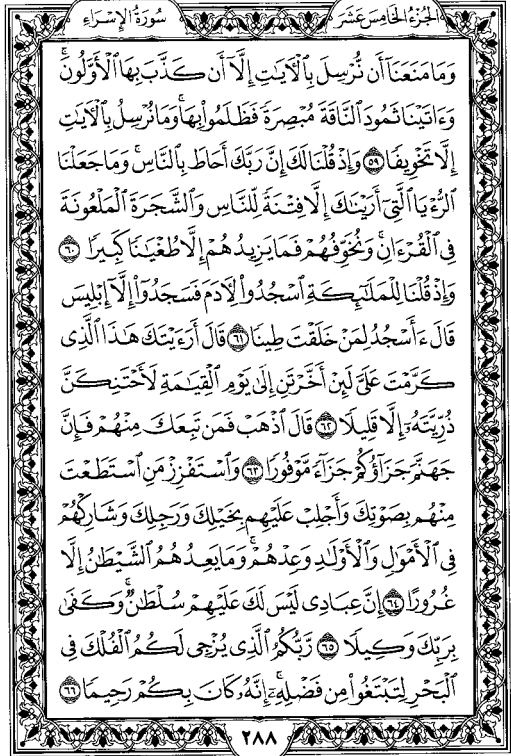 الجُزءُ الخَامِسَ عَشَرَ
سُورَةُ الإِسْرَاءِ
وَمَا مَنَعَنَآ أَن نُّرْسِلَ بِٱلْءَايَٰتِ إِلَّآ أَن كَذَّبَ بِهَا ٱلْأَوَّلُونَۚ
وَءَاتَيْنَا ثَمُودَ ٱلنَّاقَةَ مُبْصِرَةً فَظَلَمُوا۟ بِهَاۚ وَمَا نُرْسِلُ بِٱلْءَايَٰتِ
إِلَّا تَخْوِيفًا ٥٩ وَإِذْ قُلْنَا لَكَ إِنَّ رَبَّكَ أَحَاطَ بِٱلنَّاسِۚ وَمَا جَعَلْنَا
ٱلرُّءْيَا ٱلَّتِىٓ أَرَيْنَٰكَ إِلَّا فِتْنَةً لِّلنَّاسِ وَٱلشَّجَرَةَ ٱلْمَلْعُونَةَ
فِى ٱلْقُرْءَانِۚ وَنُخَوِّفُهُمْ فَمَا يَزِيدُهُمْ إِلَّا طُغْيَٰنًا كَبِيرًا ٦٠
وَإِذْ قُلْنَا لِلْمَلَٰٓئِكَةِ ٱسْجُدُوا۟ لِءَادَمَ فَسَجَدُوٓا۟ إِلَّآ إِبْلِيسَ
قَالَ ءَأَسْجُدُ لِمَنْ خَلَقْتَ طِينًا ٦١ قَالَ أَرَءَيْتَكَ هَٰذَا ٱلَّذِى
كَرَّمْتَ عَلَىَّ لَئِنْ أَخَّرْتَنِ إِلَىٰ يَوْمِ ٱلْقِيَٰمَةِ لَأَحْتَنِكَنَّ
ذُرِّيَّتَهُۥٓ إِلَّا قَلِيلًا ٦٢ قَالَ ٱذْهَبْ فَمَن تَبِعَكَ مِنْهُمْ فَإِنَّ
جَهَنَّمَ جَزَآؤُكُمْ جَزَآءً مَّوْفُورًا ٦٣ وَٱسْتَفْزِزْ مَنِ ٱسْتَطَعْتَ
مِنْهُم بِصَوْتِكَ وَأَجْلِبْ عَلَيْهِم بِخَيْلِكَ وَرَجِلِكَ وَشَارِكْهُمْ
فِى ٱلْأَمْوَٰلِ وَٱلْأَوْلَٰدِ وَعِدْهُمْۚ وَمَا يَعِدُهُمُ ٱلشَّيْطَٰنُ إِلَّا
غُرُورًا ٦٤ إِنَّ عِبَادِى لَيْسَ لَكَ عَلَيْهِمْ سُلْطَٰنٌۚ وَكَفَىٰ
بِرَبِّكَ وَكِيلًا ٦٥ رَّبُّكُمُ ٱلَّذِى يُزْجِى لَكُمُ ٱلْفُلْكَ فِى
ٱلْبَحْرِ لِتَبْتَغُوا۟ مِن فَضْلِهِۦٓۚ إِنَّهُۥ كَانَ بِكُمْ رَحِيمًا ٦٦
٢٨٨